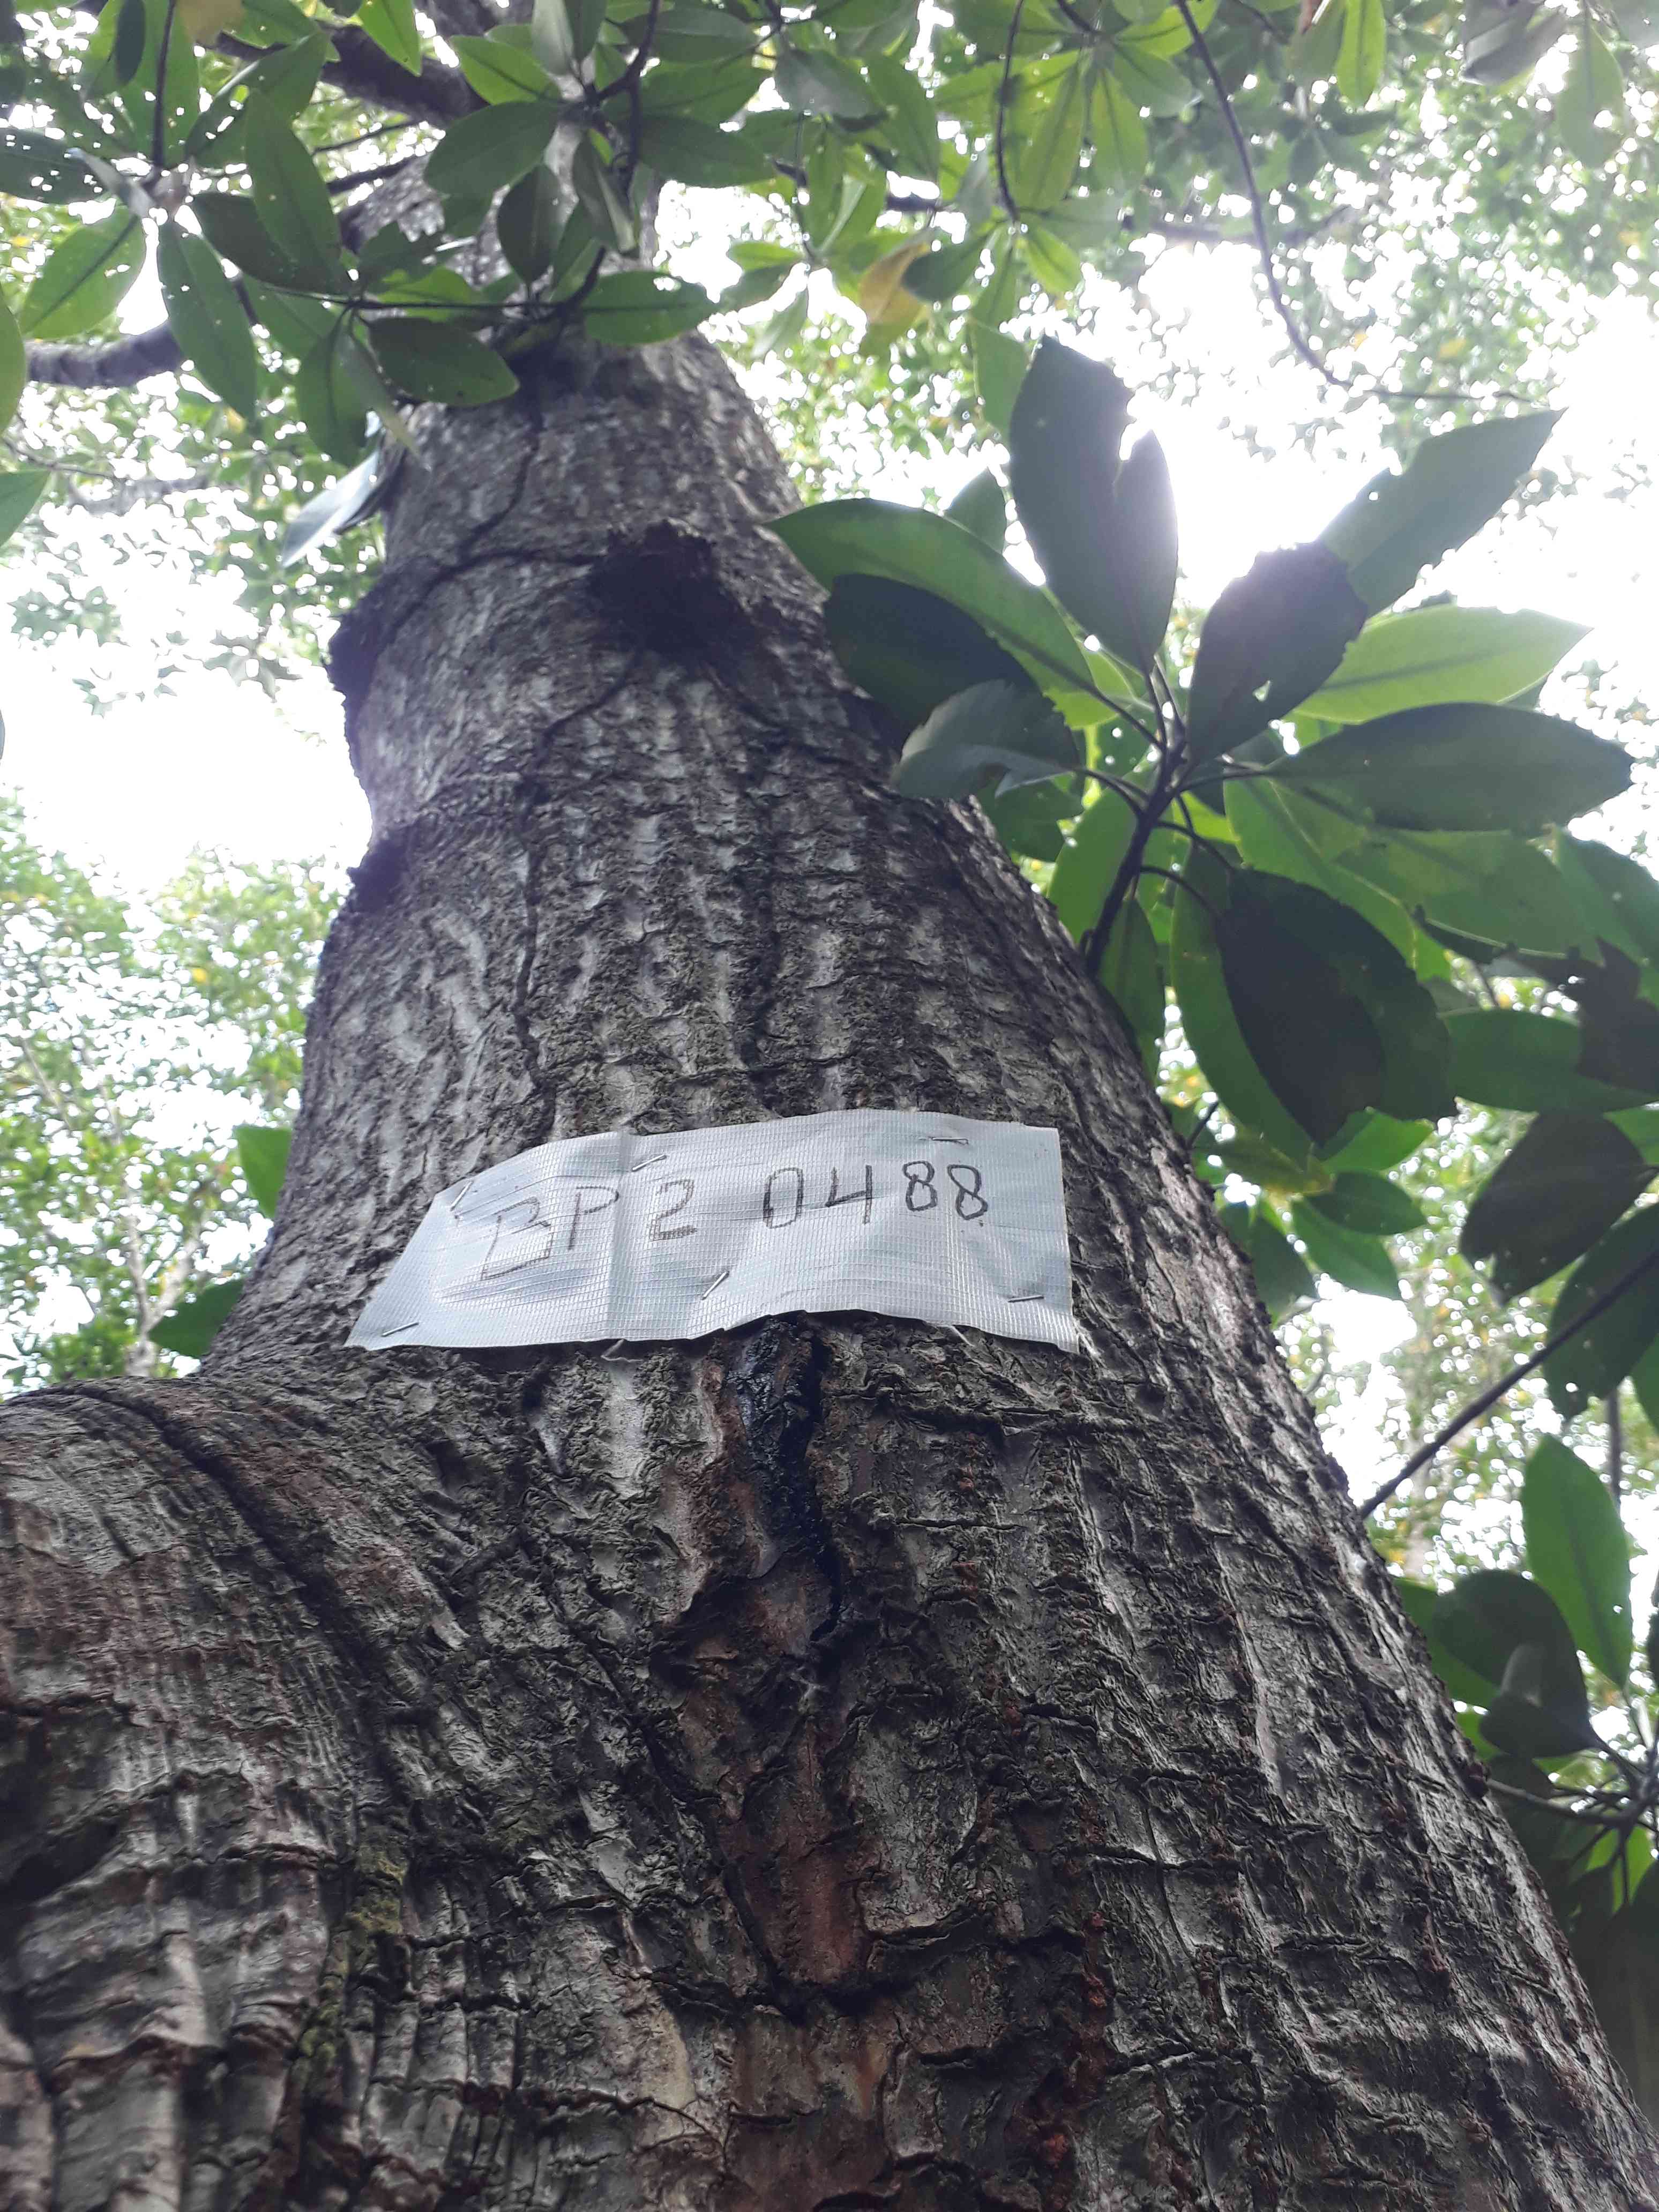 BP2 0488